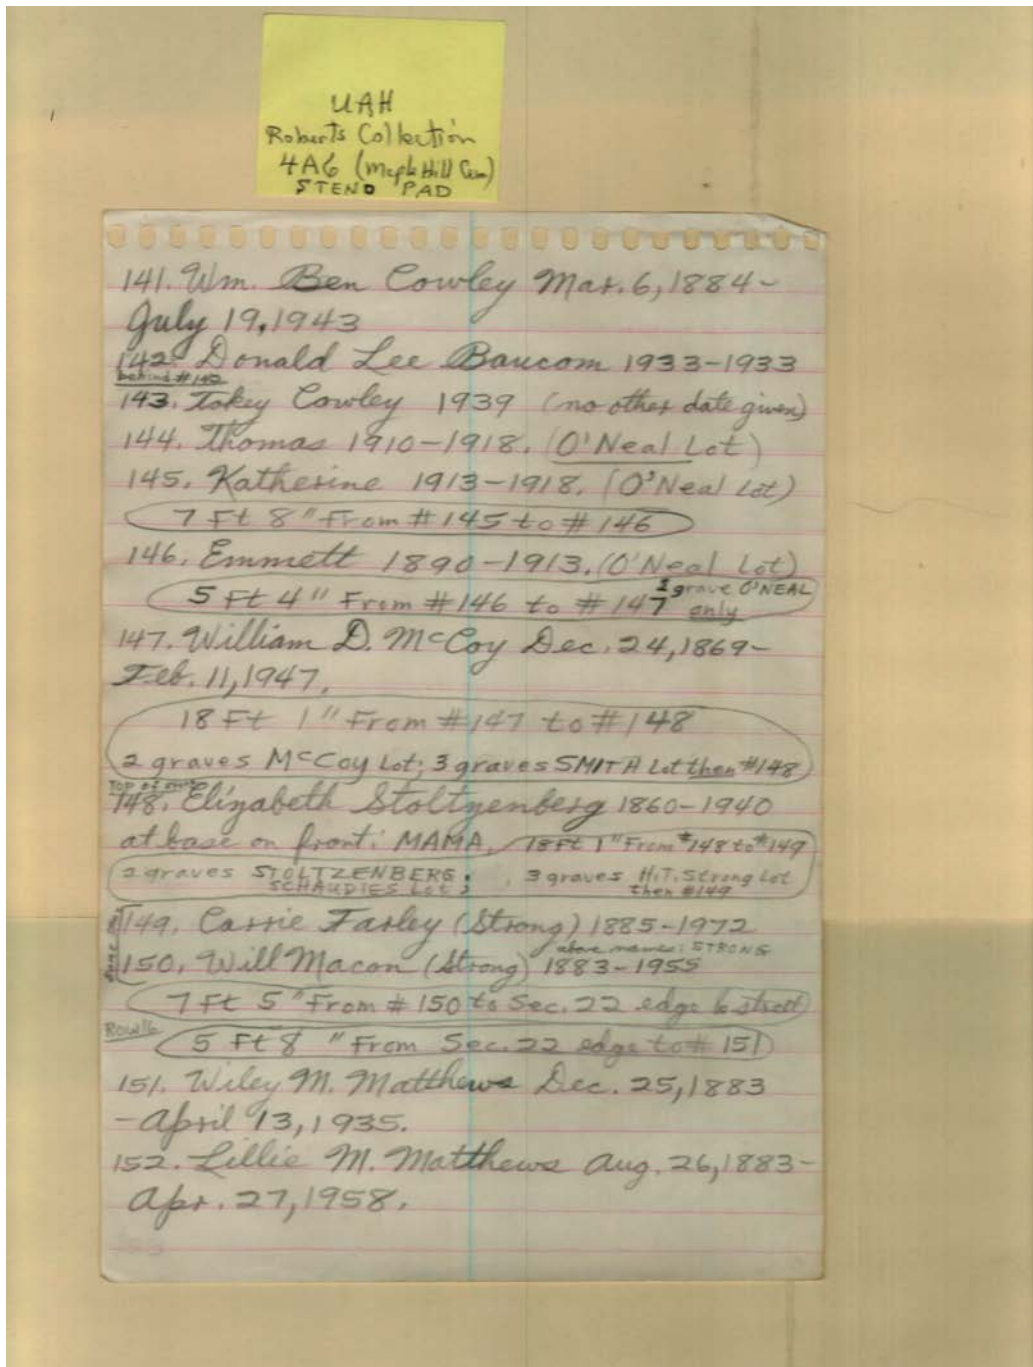 UAH
Roberts Collection
4A6 (Maple Hill Cem)
STENO PAD
141. Wm. Ben Cowley Mar. 6, 1884-
July 19, 1943
142. Donald Lee Baucom 1933-1933
behind #142
143. Tokey Cowley 1939 (no other date given)
144. Thomas 1910-1918. (O'Neal Lot)
145. Katherine 1913-1918. (O'Neal Lot)
7 Ft 8" From #145 to #146
146. Emmett 1890-1913. (O'Neal Lot)
1 grave O'NEAL
5 Ft 4" From #146 to #147 only
147. William D. McCoy Dec. 24, 1869-
Feb. 11, 1947.
18 Ft 1" From #147 to #148
2 graves McCoy Lot; 3 graves SMITH Lot then #148
Top of
148. Elizabeth Stoltzenberg 1860-1940
at base on front: MAMA. 18 Ft 1" From #148 to #149
2 graves STOLTZENBERG; 3 graves H.T. Strong Lot
SCHAUDIES Lot; then #149
149. Carrie Farley (Strong) 1885-1972
above names: STRONG
150. Will Macon (Strong) 1883-1955
7 Ft 5" From #150 to Sec. 22 edge to street
ROW 16
5 Ft 8" From Sec. 22 edge to #151
151. Wiley M. Matthews Dec. 25, 1883
-April 13, 1935.
152. Lillie M. Matthews Aug. 26, 1883-
Apr. 27, 1958.